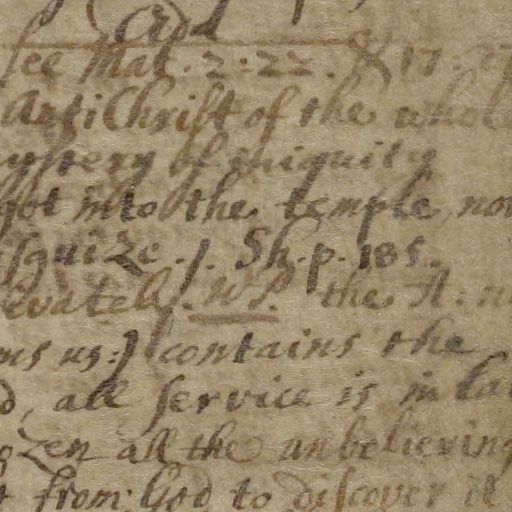 see Mat. 2:22. & 17:
AntiChrist of the whol
ystery of iniquity
got into the temple, no
sguize. Sh. p. 185.
the A:
us: contains the
d, all service is in La
ozen all the unbelieving
from God to discover it